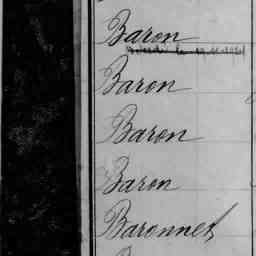 Baron
Baron
Baron
Baron
Baronnet